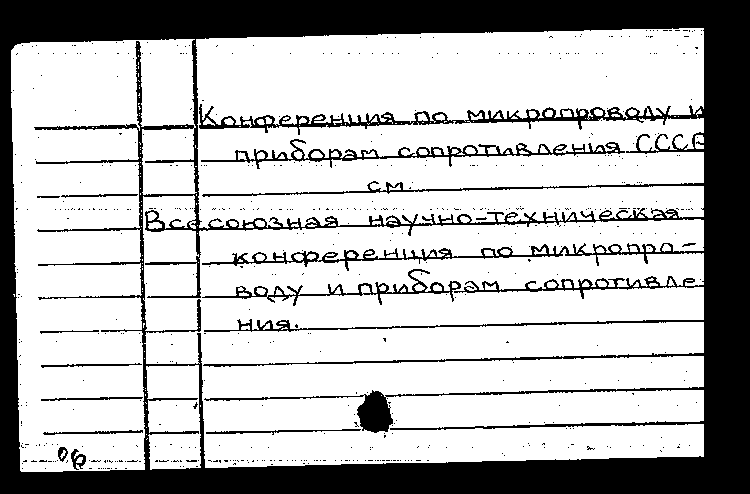 Конференция по микропроводу и
приборам сопротивления СССР
см.
Всесоюзная научно-техническая
конференция по микропро-
воду и приборам сопротивле-
ния.